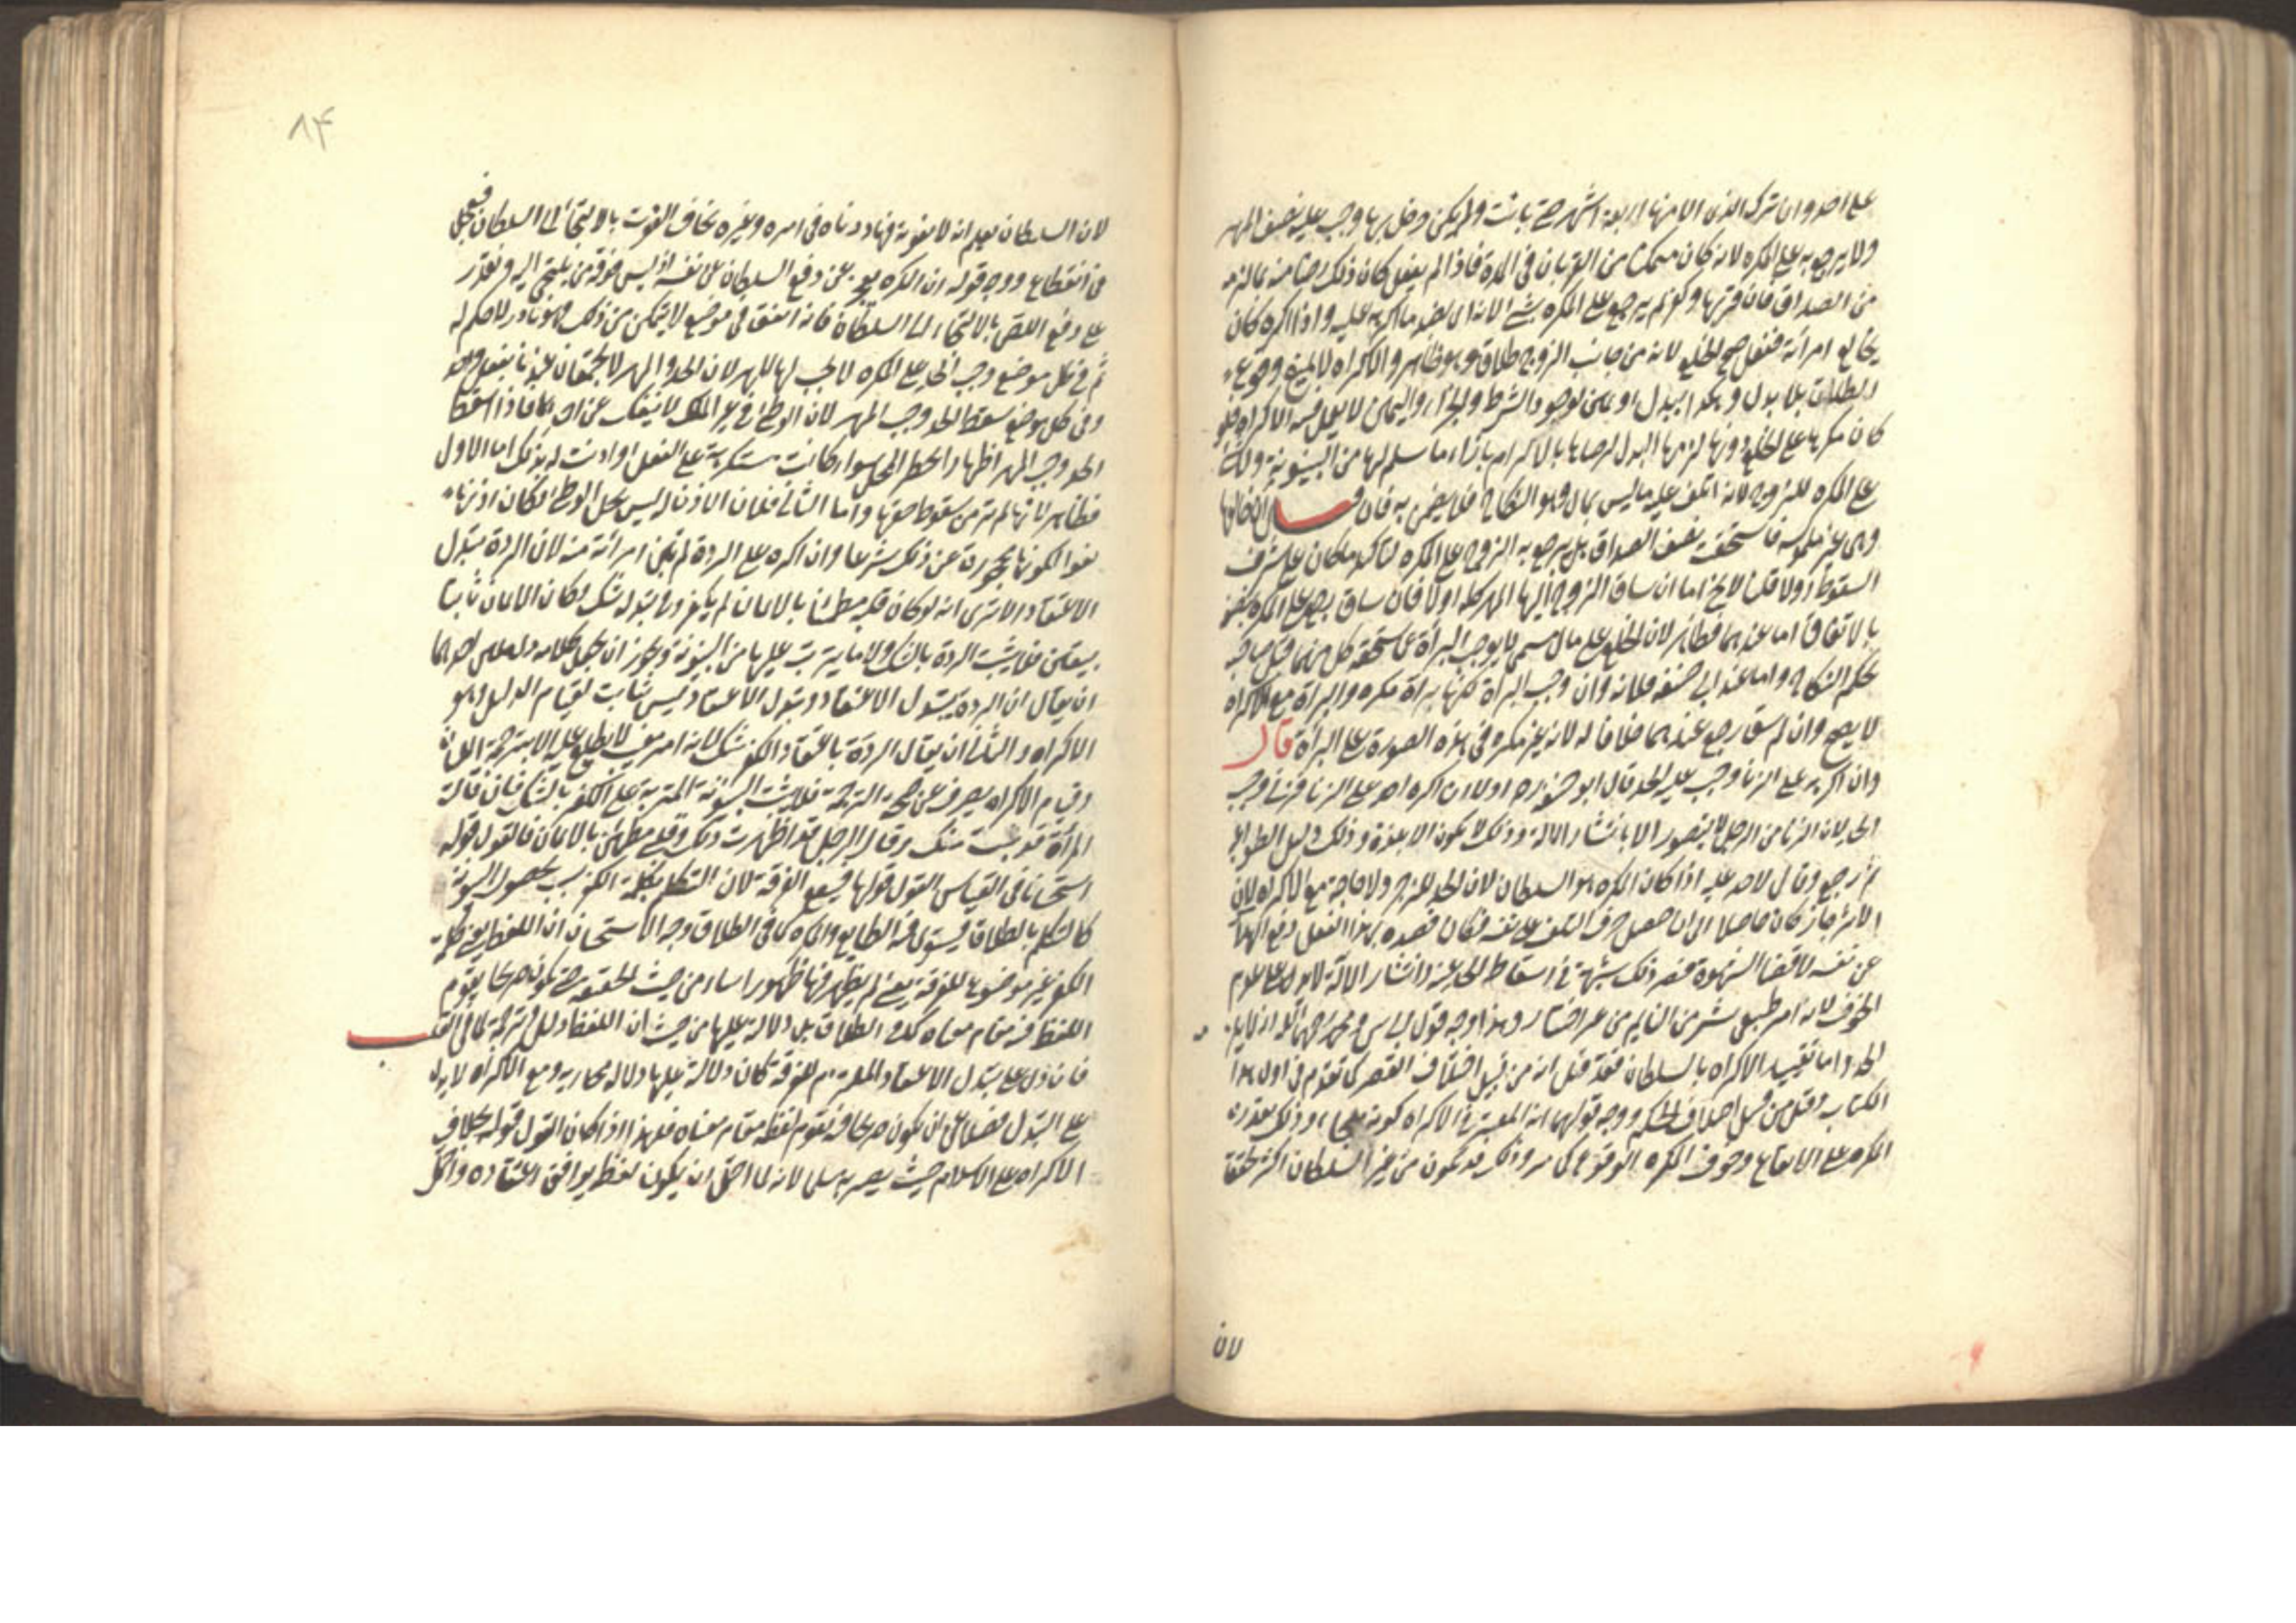 على احد وان ترك الذي الى منها اربعة اشهر حتى بانت ولم يكن دخل بها وجب عليه نصف المهر
ولا يرجع به على المكره لانه كان متمكنا من القربان في المدة فاذا لم يفعل كان ذلك رضا منه بما لزمه
من الصداق فان قربها وكفر لم يرجع على المكره بشيء لانه اتى بضد ما اكرهه عليه واذا اكره كان
يخالع امرأته ففعل صح الخلع لانه من جانب الزوج طلاق وهو ظاهر والاكراه لا يمنع وقوع
الطلاق بلا بدل وكذا ببدل او يمين لوجود الشرط والجزاء واليمين لا يعمل فيه الاكراه فلو
كان مكرها على الخلع دونها لزمها البدل لرضاها بالالتزام بازاء ما سلم لها من البينونة ولا شيء
على المكره للزوج لانه اتلف عليه ما ليس بمال وهو النكاح فلا يضمن به فان قيل ان خالعها
وهي غير ملموسة فاستحقت نصف الصداق هل يرجع به الزوج على المكره لتأكد ما كان على شرف
السقوط اولا قلنا لا يخ اما ان ساق الزوج اليها المهر كله اولا فان ساق يرجع على المكره بنصفه
بالاتفاق اما عندهما فظاهر لان الخلع على مال مسمى لا يوجب البرأة عن مستحقه كل منهما قبل صاحبه
بحكم النكاح واما عند ابي حنيفة فلانه وان وجب البرأة لكنها برأة مكره والبرأة مع الاكراه
لا يصح وان لم يسق رجع عندهما خلافا له لانه غير مكره في هذه الصورة على البرأة قال
وان اكرهه على الزنا وجب عليه الحد قال ابو حنيفة رح اولا ان اكره احد على الزنا فزنى وجب
الحد لان الزنا من الرجل لا يتصور الا بانتشار الالة وذلك لا يكون الا بلذة وذلك دليل الطواعية
ثم رجع وقال لا حد عليه اذا كان المكره هو السلطان لان الحد للزجر ولا حاجة مع الاكراه لان
الانزجار كان حاصلا الى ان حصل خوف التلف على نفسه فكان قصده بهذا الفعل دفع الهلاك
عن نفسه لا اقتضاء الشهوة فيصير ذلك شبهة في اسقاط الحد عنه وانتشار الالة لا يدل على عدم
الخوف لانه امر طبيعي ينتشر من النايم من غير اختيار وهذا وجه قول ابي يوسف ومحمد رحمهما الله ان لا يلزم
الحد واما تقييد الاكراه بالسلطان فقد قيل انه من قبيل اختلاف العصر كما تقدم في اول هذا
الكتاب وقيل من قبيل اختلاف الحكم ووجه قولهما ان المعتبر في الاكراه كونه ملجئا وذلك بقدرة
المكره على الايقاع وخوف المكره الوقوع كما مر وذلك قد يكون من غير السلطان اكثر تحققا
لان
٨٤
لان السلطان يعلم انه لا يفوته فيتأنى في امره وغيره يخاف الفوت بالالتجاء الى السلطان فيعجل
في الايقاع ووجه قوله ان المكره يعجز عن دفع السلطان عن نفسه اذ ليس فوقه من يلتجئ اليه ويقدر
على دفع اللص بالالتجاء الى السلطان فان اتفق في موضع لا يتمكن من ذلك فهو نادر لا حكم له
ثم في كل موضع وجب الحد على المكره لا يجب لها المهر لان الحد والمهر لا يجتمعان عندنا بفعل واحد
وفي كل موضع سقط الحد وجب المهر لان الوطئ في غير الملك لا ينفك عن احدهما فاذا سقط
الحد وجب المهر اظهارا لخطر المحل سواء كانت مستكرهة على الفعل او اذنت له بذلك اما الاول
فظاهر لانها لم ترض بسقوط حقها واما الثاني فلان الاذن ليس يحل الوطئ فكان اذنها
لغوا لكونها محجورة عن ذلك شرعا وان اكره على الردة لم تبن امرأته منه لان الردة تتبدل
الاعتقاد الا ترى انه لو كان قلبه مطمئنا بالايمان لم يكفر وفي تبدله شك لكان الايمان ثابتا
بيقين فلا يثبت الردة بالشك ولا ما يترتب عليها من البينونة ويجوز ان يجعل كلامه دليلين احدهما
ان يقال ان الردة بتبدل الاعتقاد وتبدل الاعتقاد ليس بثابت لقيام الدليل وهو
الاكراه والثاني ان يقال الردة باعتقاد الكفر شك لانه امر مخفي لا يطلع عليه الا بترجمة اللسان
وقيام الاكراه يصرف عن صحة الترجمة فلا يثبت البينونة المترتبة على الكفر بالشك فان قالت
المرأة قد بنت منك وقال الرجل قد اظهرت ذلك وقلبي مطمئن بالايمان فالقول قوله
استحسانا في القياس القول قولها فيقع الفرقة لان التكلم بكلمة الكفر سبب لحصول البينونة
كالتكلم بالطلاق فيستوي فيه الطايع والمكره كما في الطلاق وجه الاستحسان ان اللفظ يعني كلمة
الكفر غير موضوعة للفرقة يعني لم يظهر فيها ظهورا بينا من حيث الحقيقة حتى تكون صريحا يقوم
اللفظ فيه مقام معناه كما في الطلاق بل دلالة عليها من حيث ان اللفظ دليل وترجمة لما في القلب
فان دل على تبدل الاعتقاد المستلزم للفرقة كان دلالة عليها دلالة مجازية ومع الاكراه لا يدل
على التبدل فضلا عن ان يكون صريحا فيه فيقوم لفظه مقام معناه فلهذا اذا كان القول قوله بخلاف
الاكراه على الاسلام حيث يصير به مسلما لانه لما احتمل ان يكون لفظه يوافق اعتقاده واحتمل